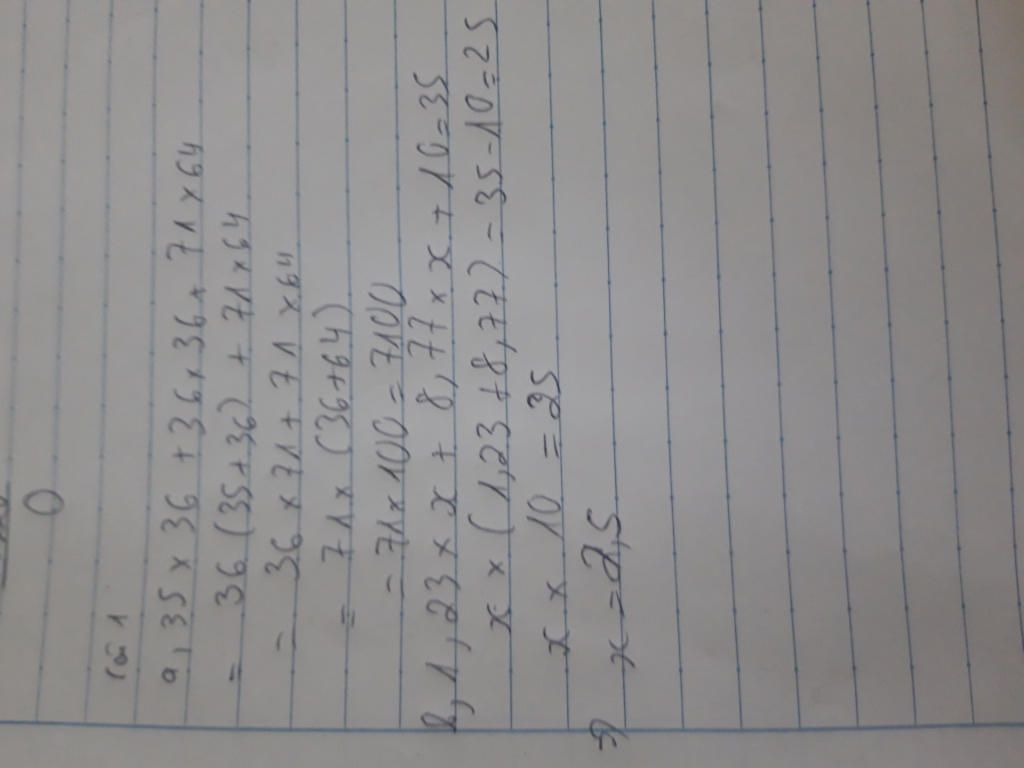 0
Câu 1
a, 35 x 36 + 36 x 36 + 71 x 64
= 36 (35+36) + 71 x 64
= 36 x 71 + 71 x 64
= 71 x (36+64)
= 71 x 100 = 7100
b, 1,23 x x + 8,77 x x + 10 = 35
x x (1,23 + 8,77) = 35 - 10 = 25
x x 10 = 25
=> x = 2,5